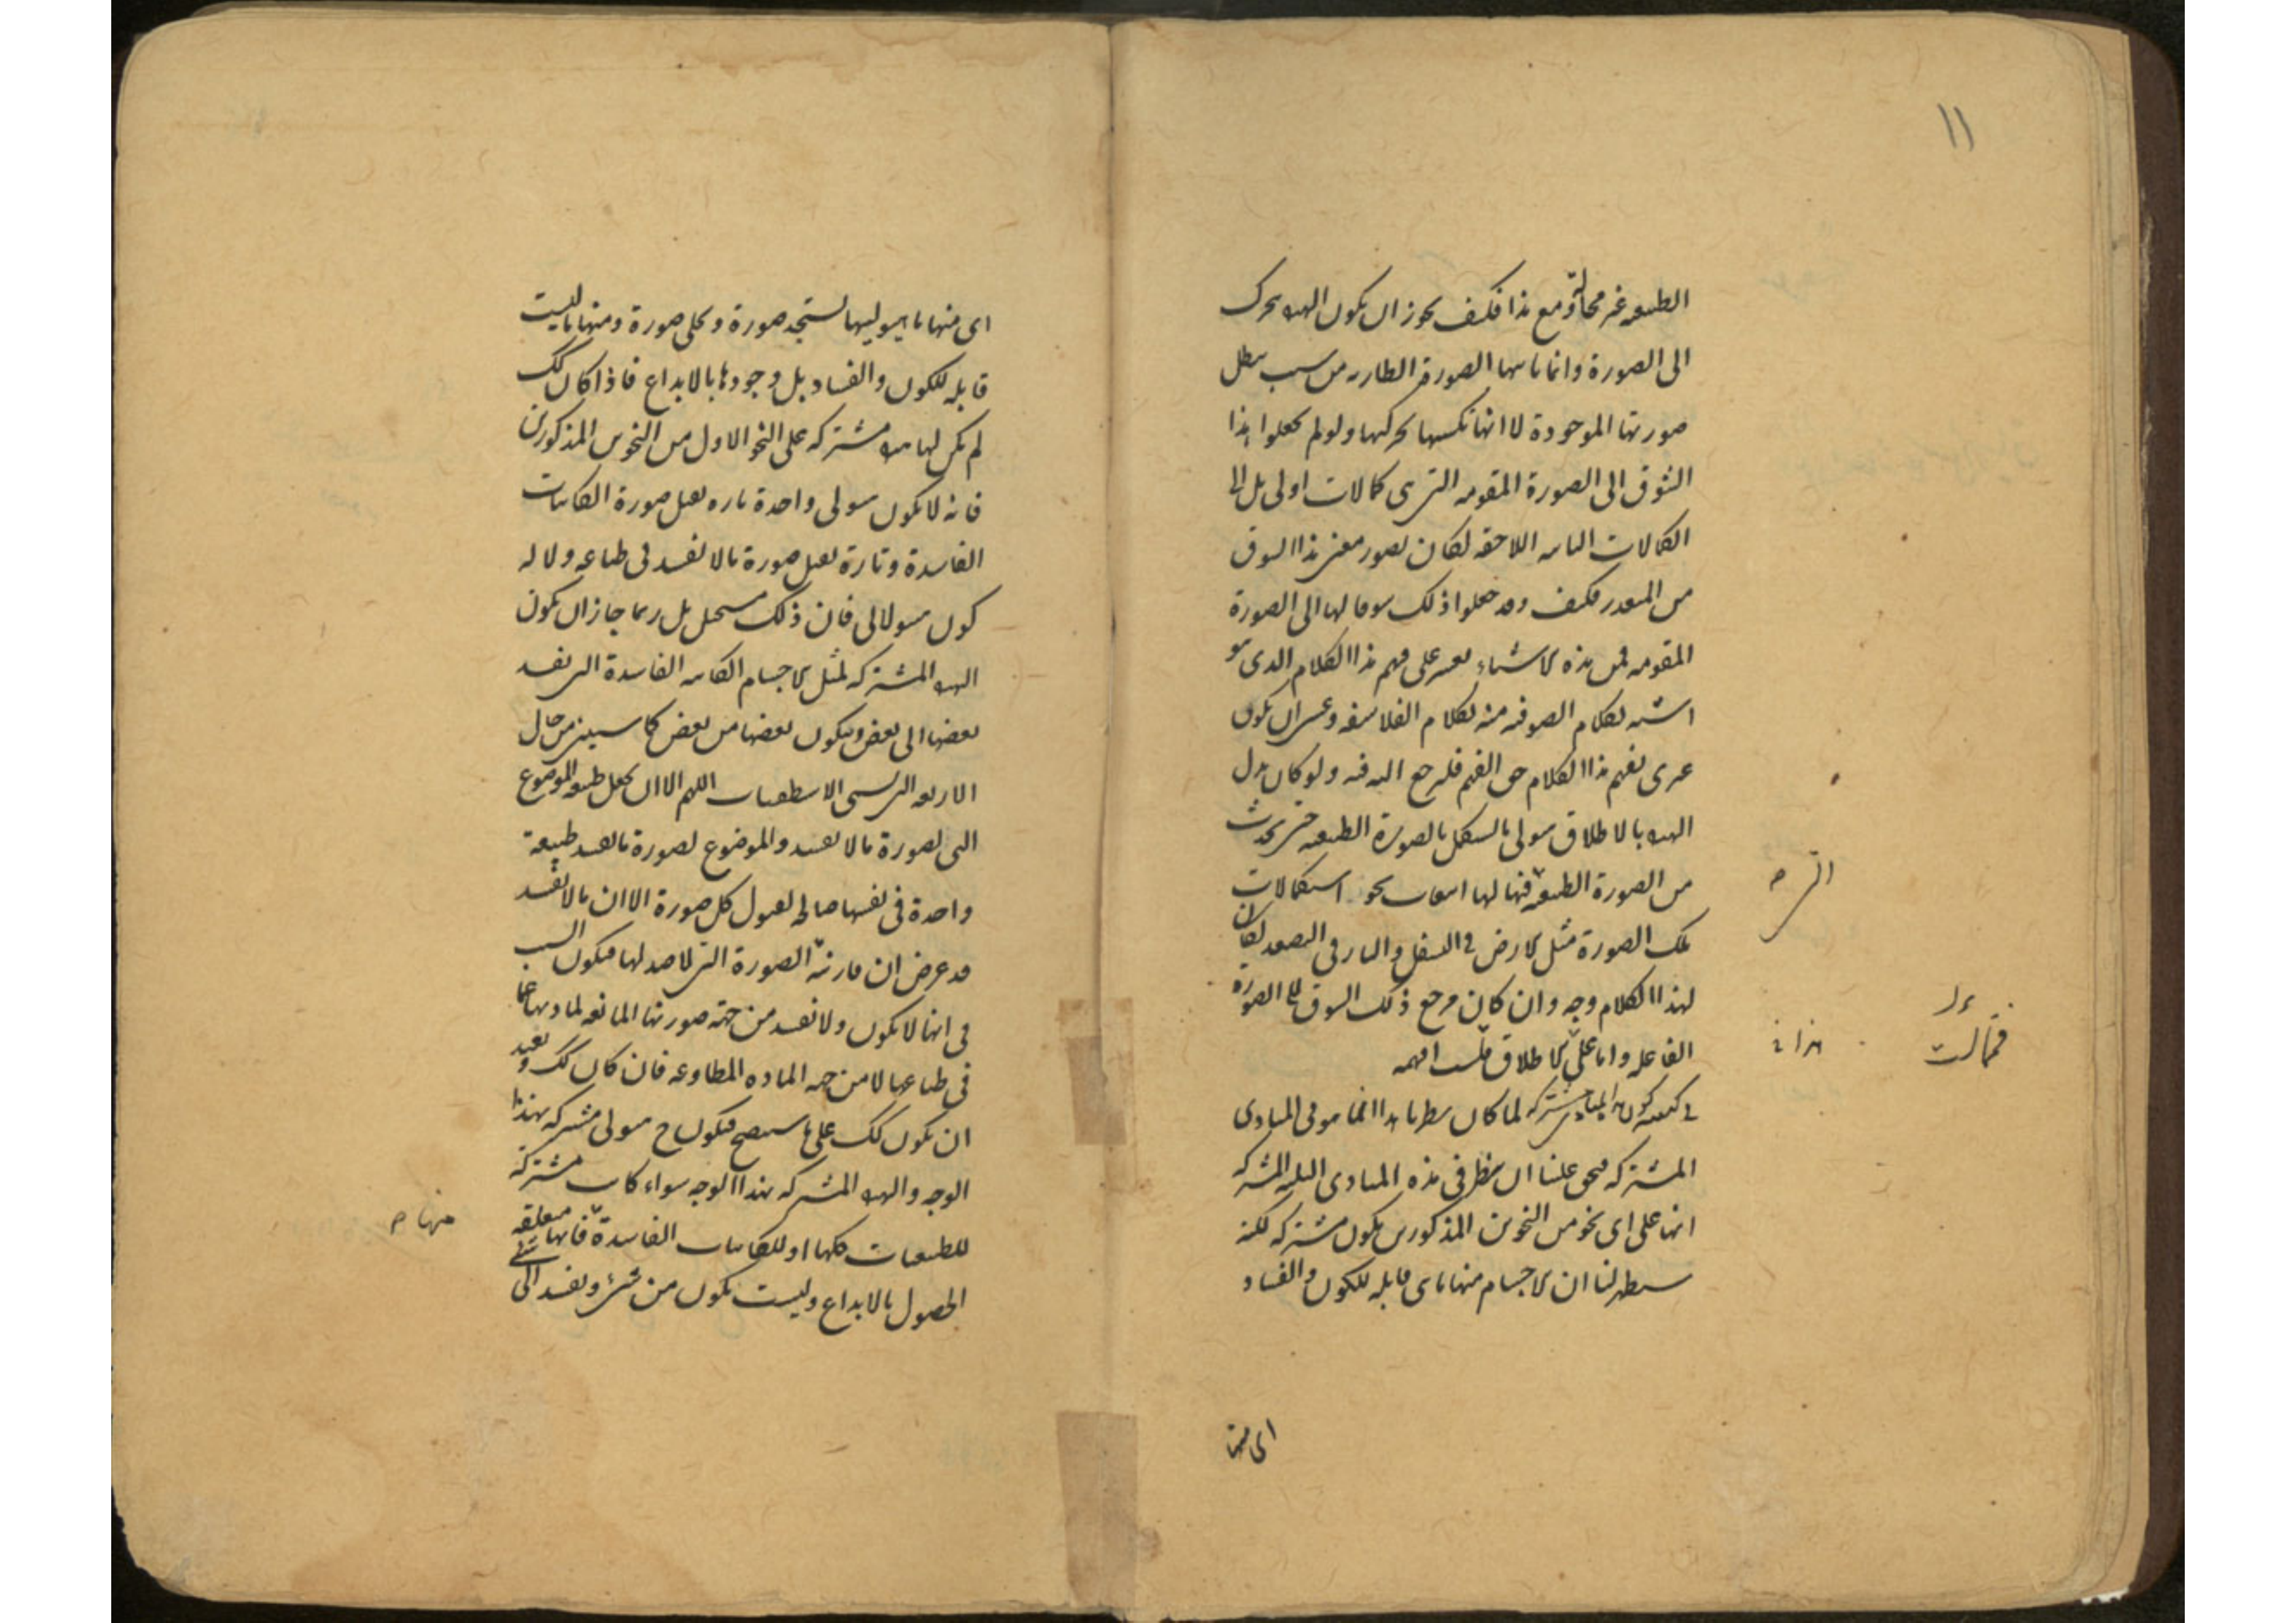 ١١
الطبیعیه غیر محالة ومع هذا فکیف یجوز ان یکون الهیولی تتحرک
الی الصورة وانما یاتیها الصورة الطاریه من سبب یبطل
صورتها الموجودة لا انها تکسبها بحرکتها ولو لم یجعلوا هذا
الشوق الی الصورة المقومه التی هی کمالات اولی بل الی
الکمالات الثانیه اللاحقه لکان تصور معنی هذا الشوق
من المتعذر فکیف وقد جعلوا ذلک شوقا لها الی الصورة
المقومه فمن هذه الاشیاء یعسر علی فهم هذا الکلام الذی هو
اشبه بکلام الصوفیه منه بکلام الفلاسفه وعسی ان یکون
غیری یفهم هذا الکلام حق الفهم فلیرجع الیه فیه ولو کان بدل
الهیولی بالاطلاق هیولی ما یستکمل بالصورة الطبیعیه حتی یحدث
من الصورة الطبیعیه فیها لها انبعاث نحو استکمالات
تلک الصورة مثل الارض فی التسفل والنار فی التصعد لکان
لهذا الکلام وجه وان کان مرجع ذلک الشوق الی الصورة
الفاعله واما علی الاطلاق فلست افهمه
فی کیفیه کون المبادی مشترکه لما کان نظرنا هذا انما هو فی المبادی
المشترکه فیحق علینا ان ننظر فی هذه المبادی الثلثه المشترکه
انها علی ای نحو من النحوین المذکورین یکون مشترکه لکنه
سیظهر لنا ان الاجسام منها ما هی قابله للکون والفساد
ای منها
ای منها ما هیولیها یستجد صورة ویخلی صورة ومنها ما لیست
قابله للکون والفساد بل وجودها بالابداع فاذا کان کک
لم یکن لها هیولی مشترکه علی النحو الاول من النحوین المذکورین
فانه لا یکون هیولی واحدة تاره یقبل صورة الکاینات
الفاسدة وتارة یقبل صورة ما لا یفسد فی طباعه ولا له
کون هیولانی فان ذلک مستحیل بل ربما جاز ان یکون
الهیولی المشترکه لمثل الاجسام الکاینه الفاسدة التی یفسد
بعضها الی بعض ویتکون بعضها من بعض کما سنبین من حال
الاربعه التی تسمی الاسطقسات اللهم الا ان نجعل طبیعه الموضوع
التی لصورة ما لا یفسد والموضوع لصورة ما یفسد طبیعة
واحدة فی نفسها صالحه لقبول کل صورة الا ان ما لا یفسد
قد عرض ان قارنته الصورة التی لا ضد لها فیکون السبب
فی انها لا یکون ولا یفسد من جهة صورتها المانعه لمادتها عما
فی طباعها لا من جهه الماده المطاوعه فان کان کک وبعید
ان یکون کک علی ما سیتضح فیکون ح هیولی مشترکه بهذا
الوجه والهیولی المشترکه بهذا الوجه سواء کانت مشترکة
للطبیعیات کلها او للکاینات الفاسدة فانها متعلقه
الحصول بالابداع ولیست یکون من شیء ویفسد الی شئ
منها ص